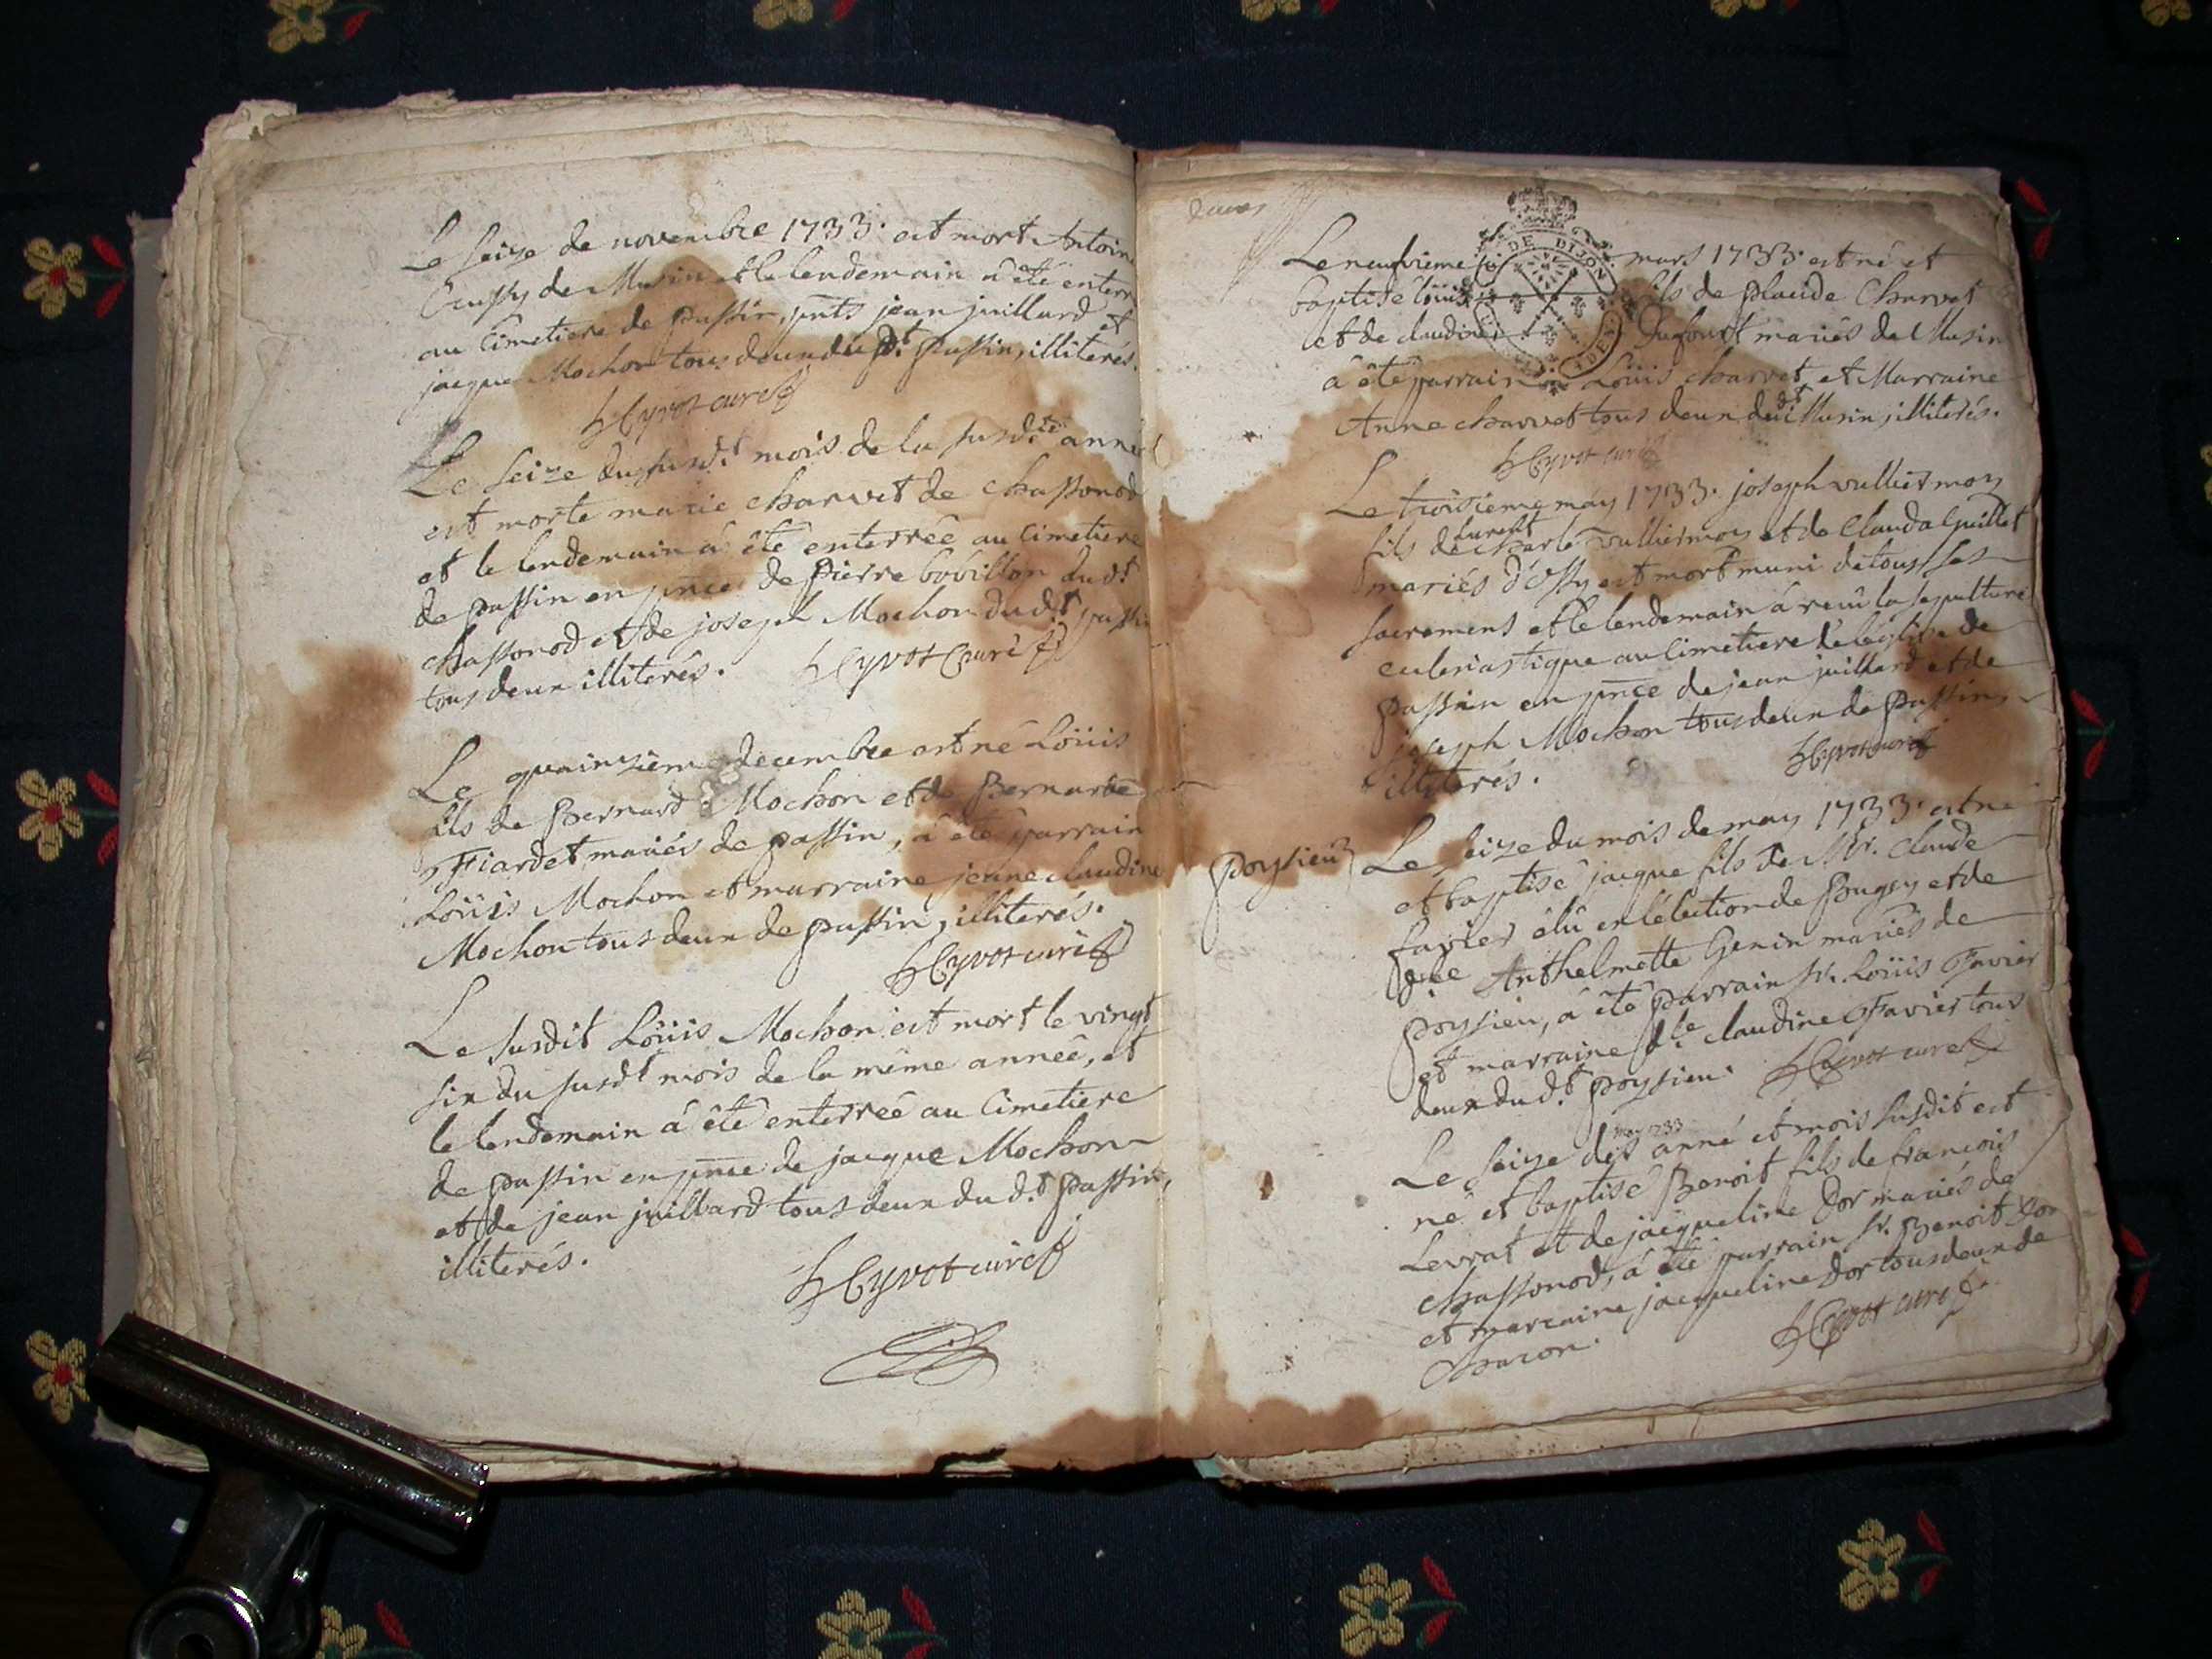 Le seize de novembre 1733. est mort Antoin
Cussy de Musin et le lendemain a été enterr
au cimetiere de passin, pnts jean juillard et
jacque Mochon tous deux du dt. passin, illiterés.
Hyvot curé
Le seize du susdt. mois de la susdte année
est morte marie charvet de chassonod
et le lendemain â été enterrée au Cimetiere
de passin en pnce de pierre bovillon du dt
chassonod et de joseph Mochon du dt. passi
tous deux illiterés. Hyvot Curé
Le quainzieme decembre est né Loüis
fils de Bernard Mochon et de Bernarde
Fiardet mariés de passin, â été parrain
Loüis Mochon et marraine jeane claudine
Mochon tous deux de passin, illiterés.
Hyvot curé
Le susdit Loüis Mochon est mort le vingt
six du susdt mois de la même année, et
le lendemain â été enterreé au Cimetiere
de passin en pnce de jacque Mochon
et de jean juillard tous deux du d.t passin,
illiterés.
Hyvot curé
DE DIJON
Le neufvieme mars 1733. est né et
baptisé loüis fils de plaude Charvet
et de claudine Dufourt mariés de Musin
â été parrain Loüis charvet et Marraine
Anne charvet tous deux dudt Musin, illiterés.
Hyvot curé
Le troisieme may 1733. joseph vulliermoz
fils de laurent charle vulliermoz et de Clauda Guillet
mariés d'ossy est mort muni de tous ses
sacremens et le lendemain â reçû la sepulture
eclesiastique au Cimetiere de l'église de
passin en pnce de jean juillard et de
joseph Mochon tous deux de passin,
illiterés. Hyvot curé
poysieu
Le seize du mois de may 1733. est né
et baptisé jacque fils de Mr. Claude
favier elû en l'élection de Bugey et de
Dlle Anthelmette Genin mariés de
poysieu, â été parrain sr. Loüis Favier
et marraine dlle claudine Favier tous
deux du d.t poysieu. Hyvot curé
may 1733
Le seize des anné et mois susdit est
né et baptisé Benoit fils de francois
Levrat et de jacqueline Dor mariés de
chassonod, â été parrain sr. Benoit Dor
et marraine jacqueline Dor tous deux de
Hyvot curé